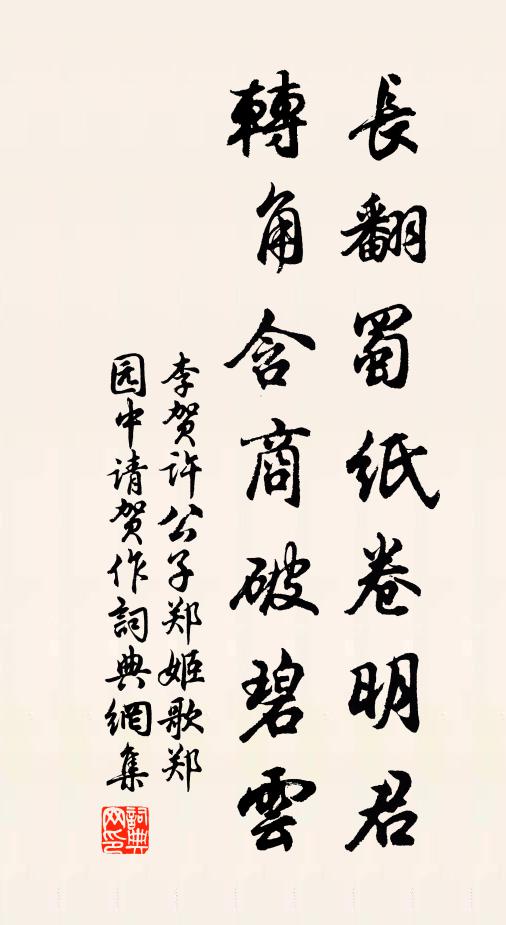 長翻蜀紙卷明君
轉角含商破碧雲
李贺许公子郑姬歌郑
园中请贺作詞典網集
詞典
网印